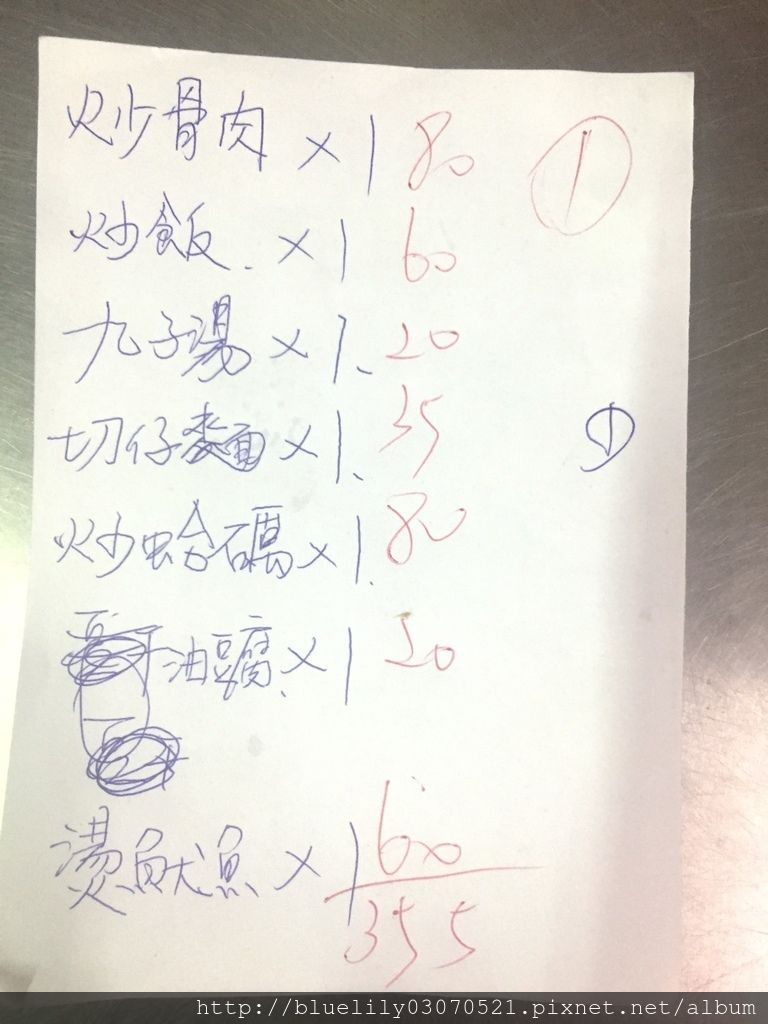 炒骨肉 ×1 80 ①
炒飯. ×1 60
九子湯 ×1、20
切仔麵 ×1、35 ①
炒蛤 ×1. 80
油豆腐 ×1 20
燙魷魚 × 1 60
355
http://bluelily03070521.pixnet.net/album